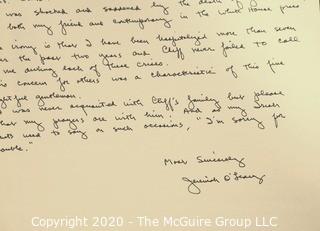 was shocked and saddened by the death of
both my friend and contemporary in the White House press
irony is that I have been hospitalized more than seven
the past two years and Cliff never failed to call
me during each of these crises.
is concern for others was a characteristic of this fine
tful gentleman.
was never acquainted with Cliff's family but please
that my prayers are with him. And as my Irish
nts used to say on such occasions, "I'm sorry for
ouble."
Most Sincerely
Jeremiah O'Leary
Copyright 2020 - The McGuire Group LLC